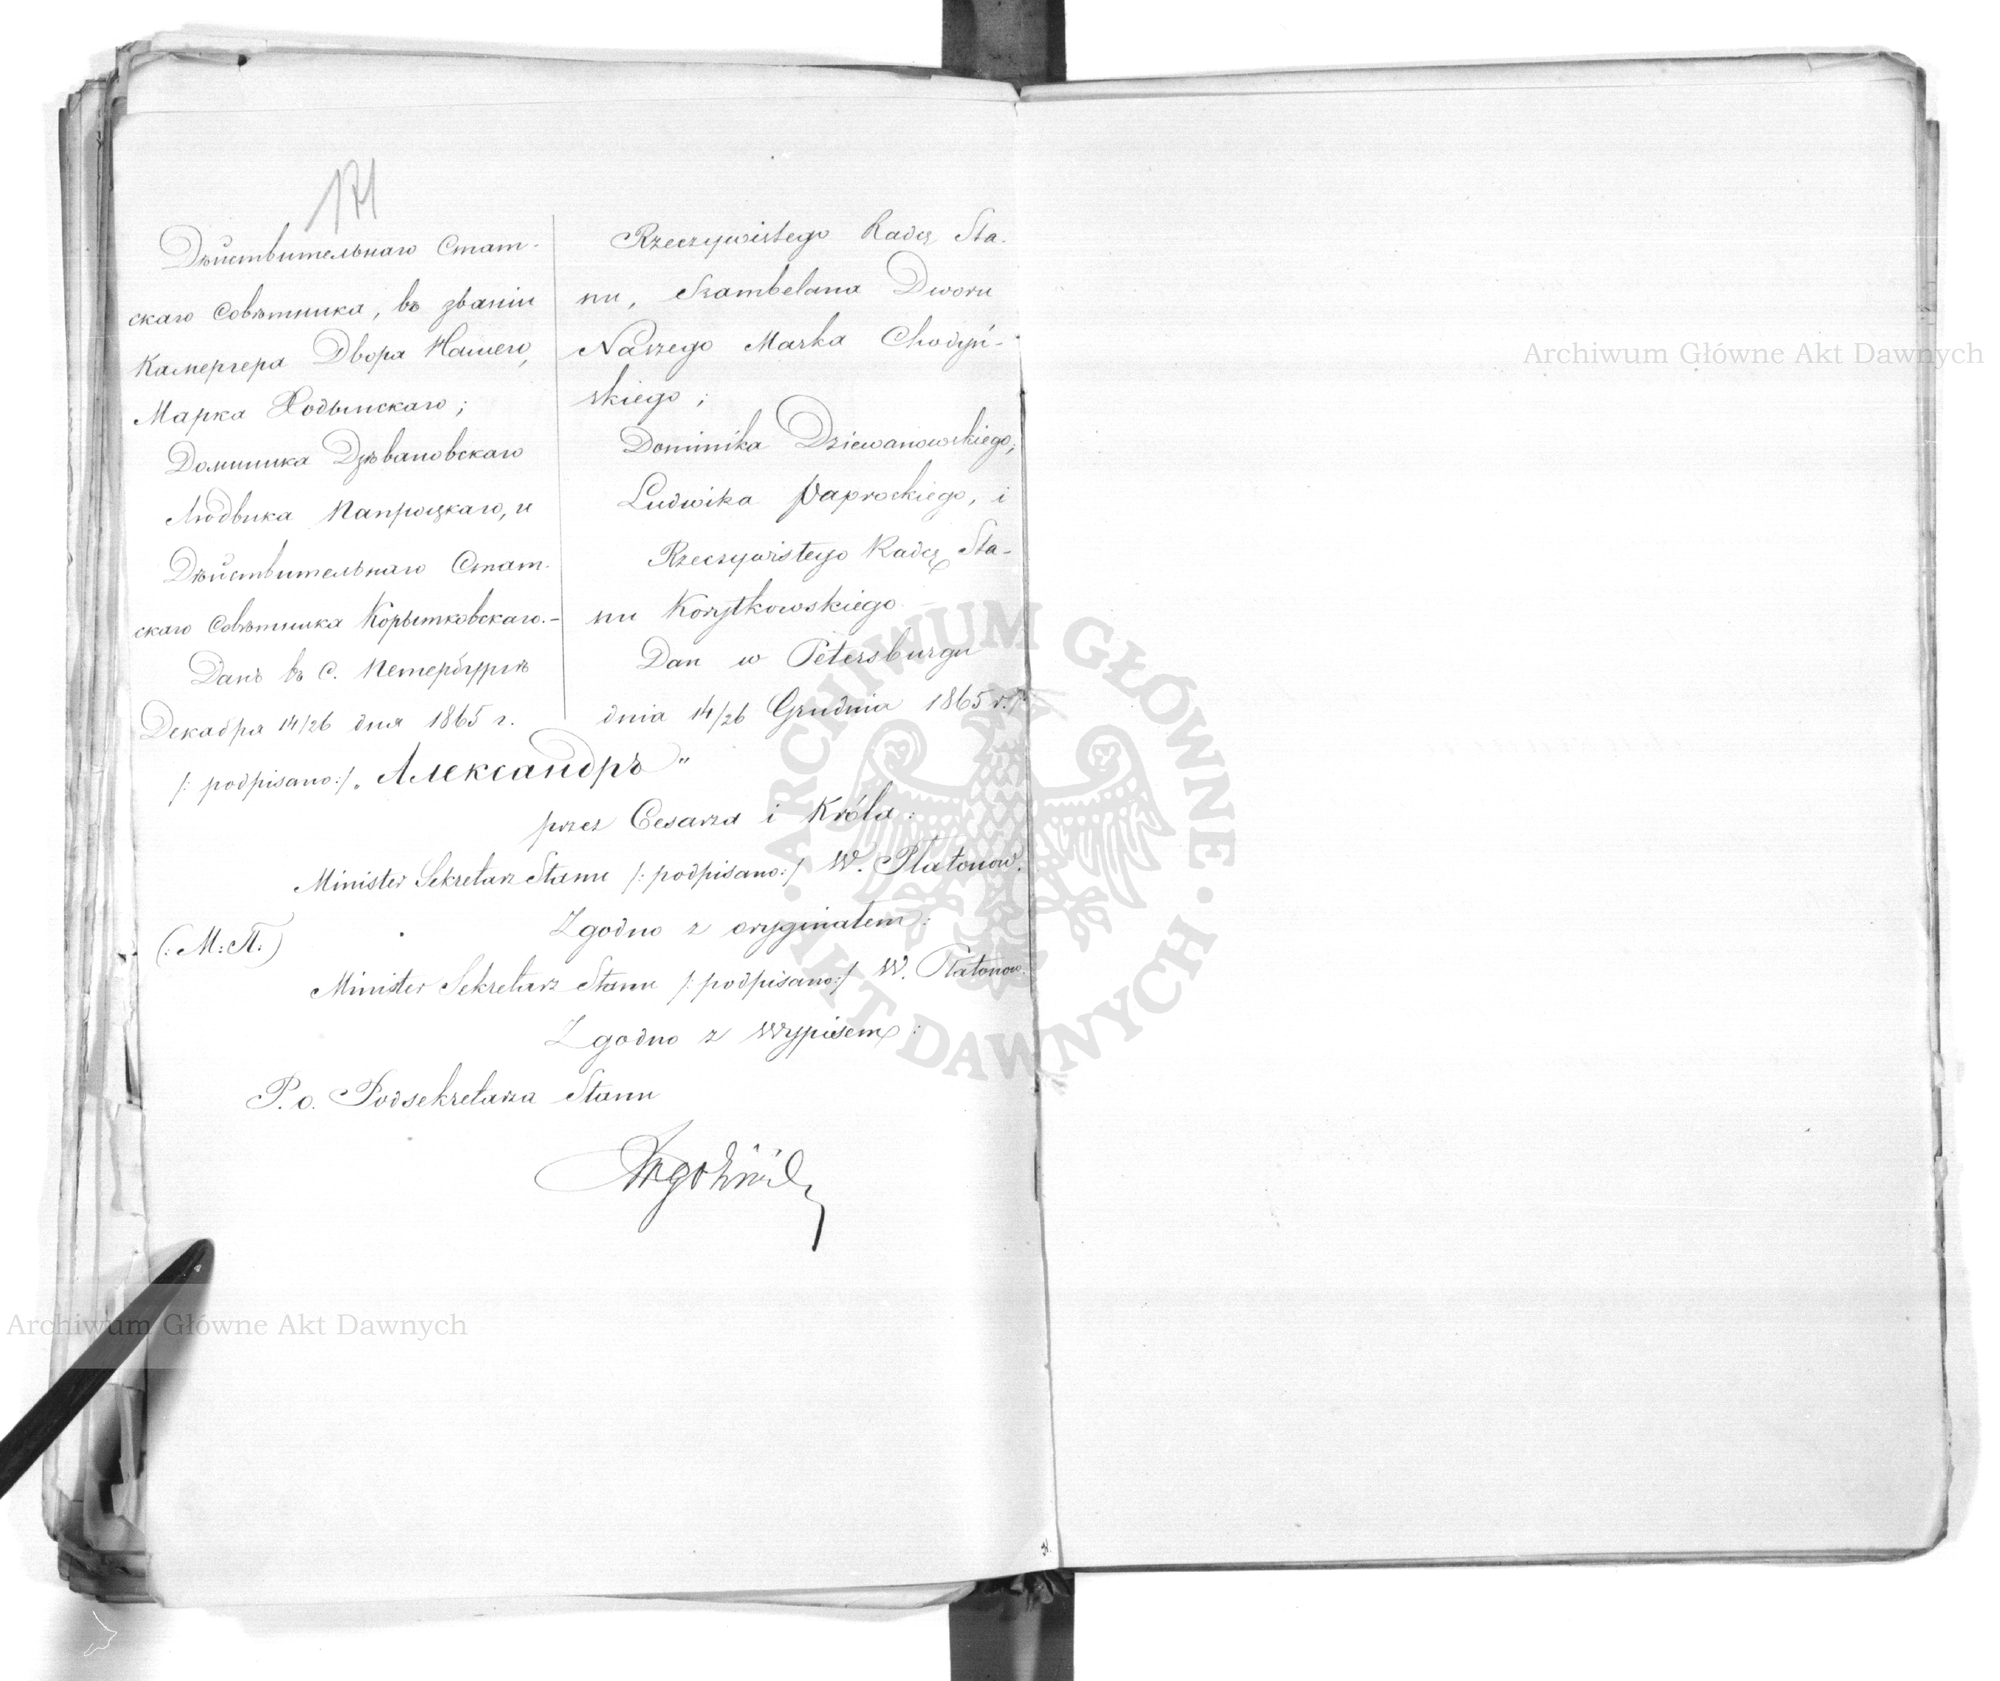 171
Дѣйствительнаго Стат-
скаго Совѣтника, въ званіи
Камергера Двора Нашего,
Марка Ходынскаго;
Доминика Дзѣвановскаго
Людвика Папроцкаго, и
Дѣйствительнаго Стат-
скаго Совѣтника Корытковскаго.-
Данъ въ С. Петербургѣ
Декабря 14/26 дня 1865 г.
Rzeczywistego Radcę Sta-
nu, Szambelana Dworu
Naszego Marka Chodyń-
skiego;
Dominika Dziewanowskiego,
Ludwika Paprockiego, i
Rzeczywistego Radcę Sta-
nu Korytkowskiego
Dan w Petersburgu
dnia 14/26 Grudnia 1865 r.
/: podpisano:/ „Александръ"
przez Cesarza i Króla:
Minister Sekretarz Stanu /: podpisano:/ W. Platonow.
Zgodno z oryginałem:
(:М:П:)
Minister Sekretarz Stanu /: podpisano:/ W. Platonow.
Zgodno z Wypisem:
P. o. Podsekretarza Stanu
Archiwum Główne Akt Dawnych
Archiwum Główne Akt Dawnych
ARCHIWUM GŁÓWNE AKT DAWNYCH